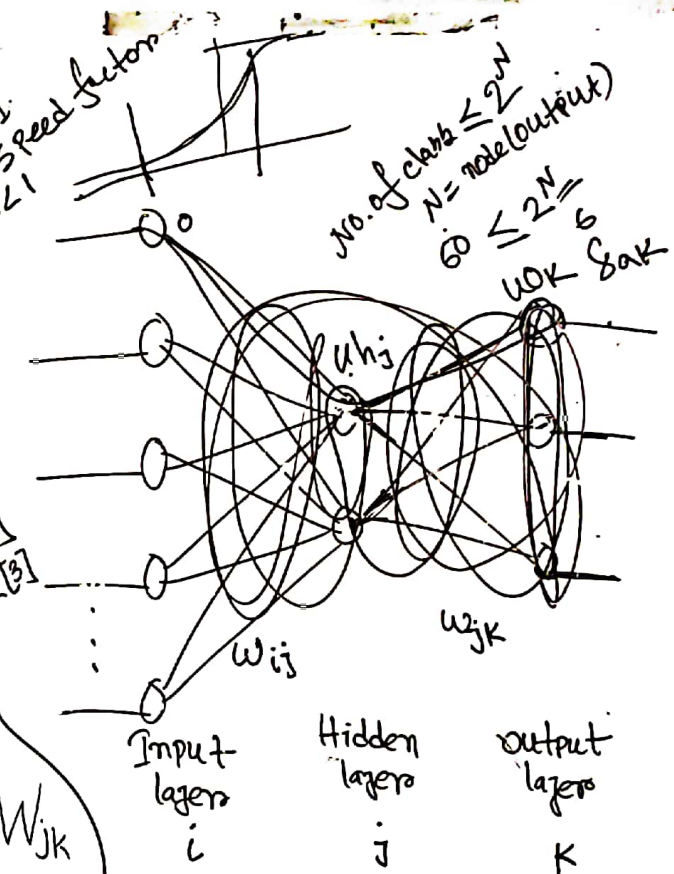 Speed factor
<1
No. of class ≤ 2^N
N = node (output)
60 ≤ 2^N =
6
0
uhj
uok δak
[3]
Wij
Wjk
Input
layer
i
Hidden
layer
j
output
layer
k
Wjk